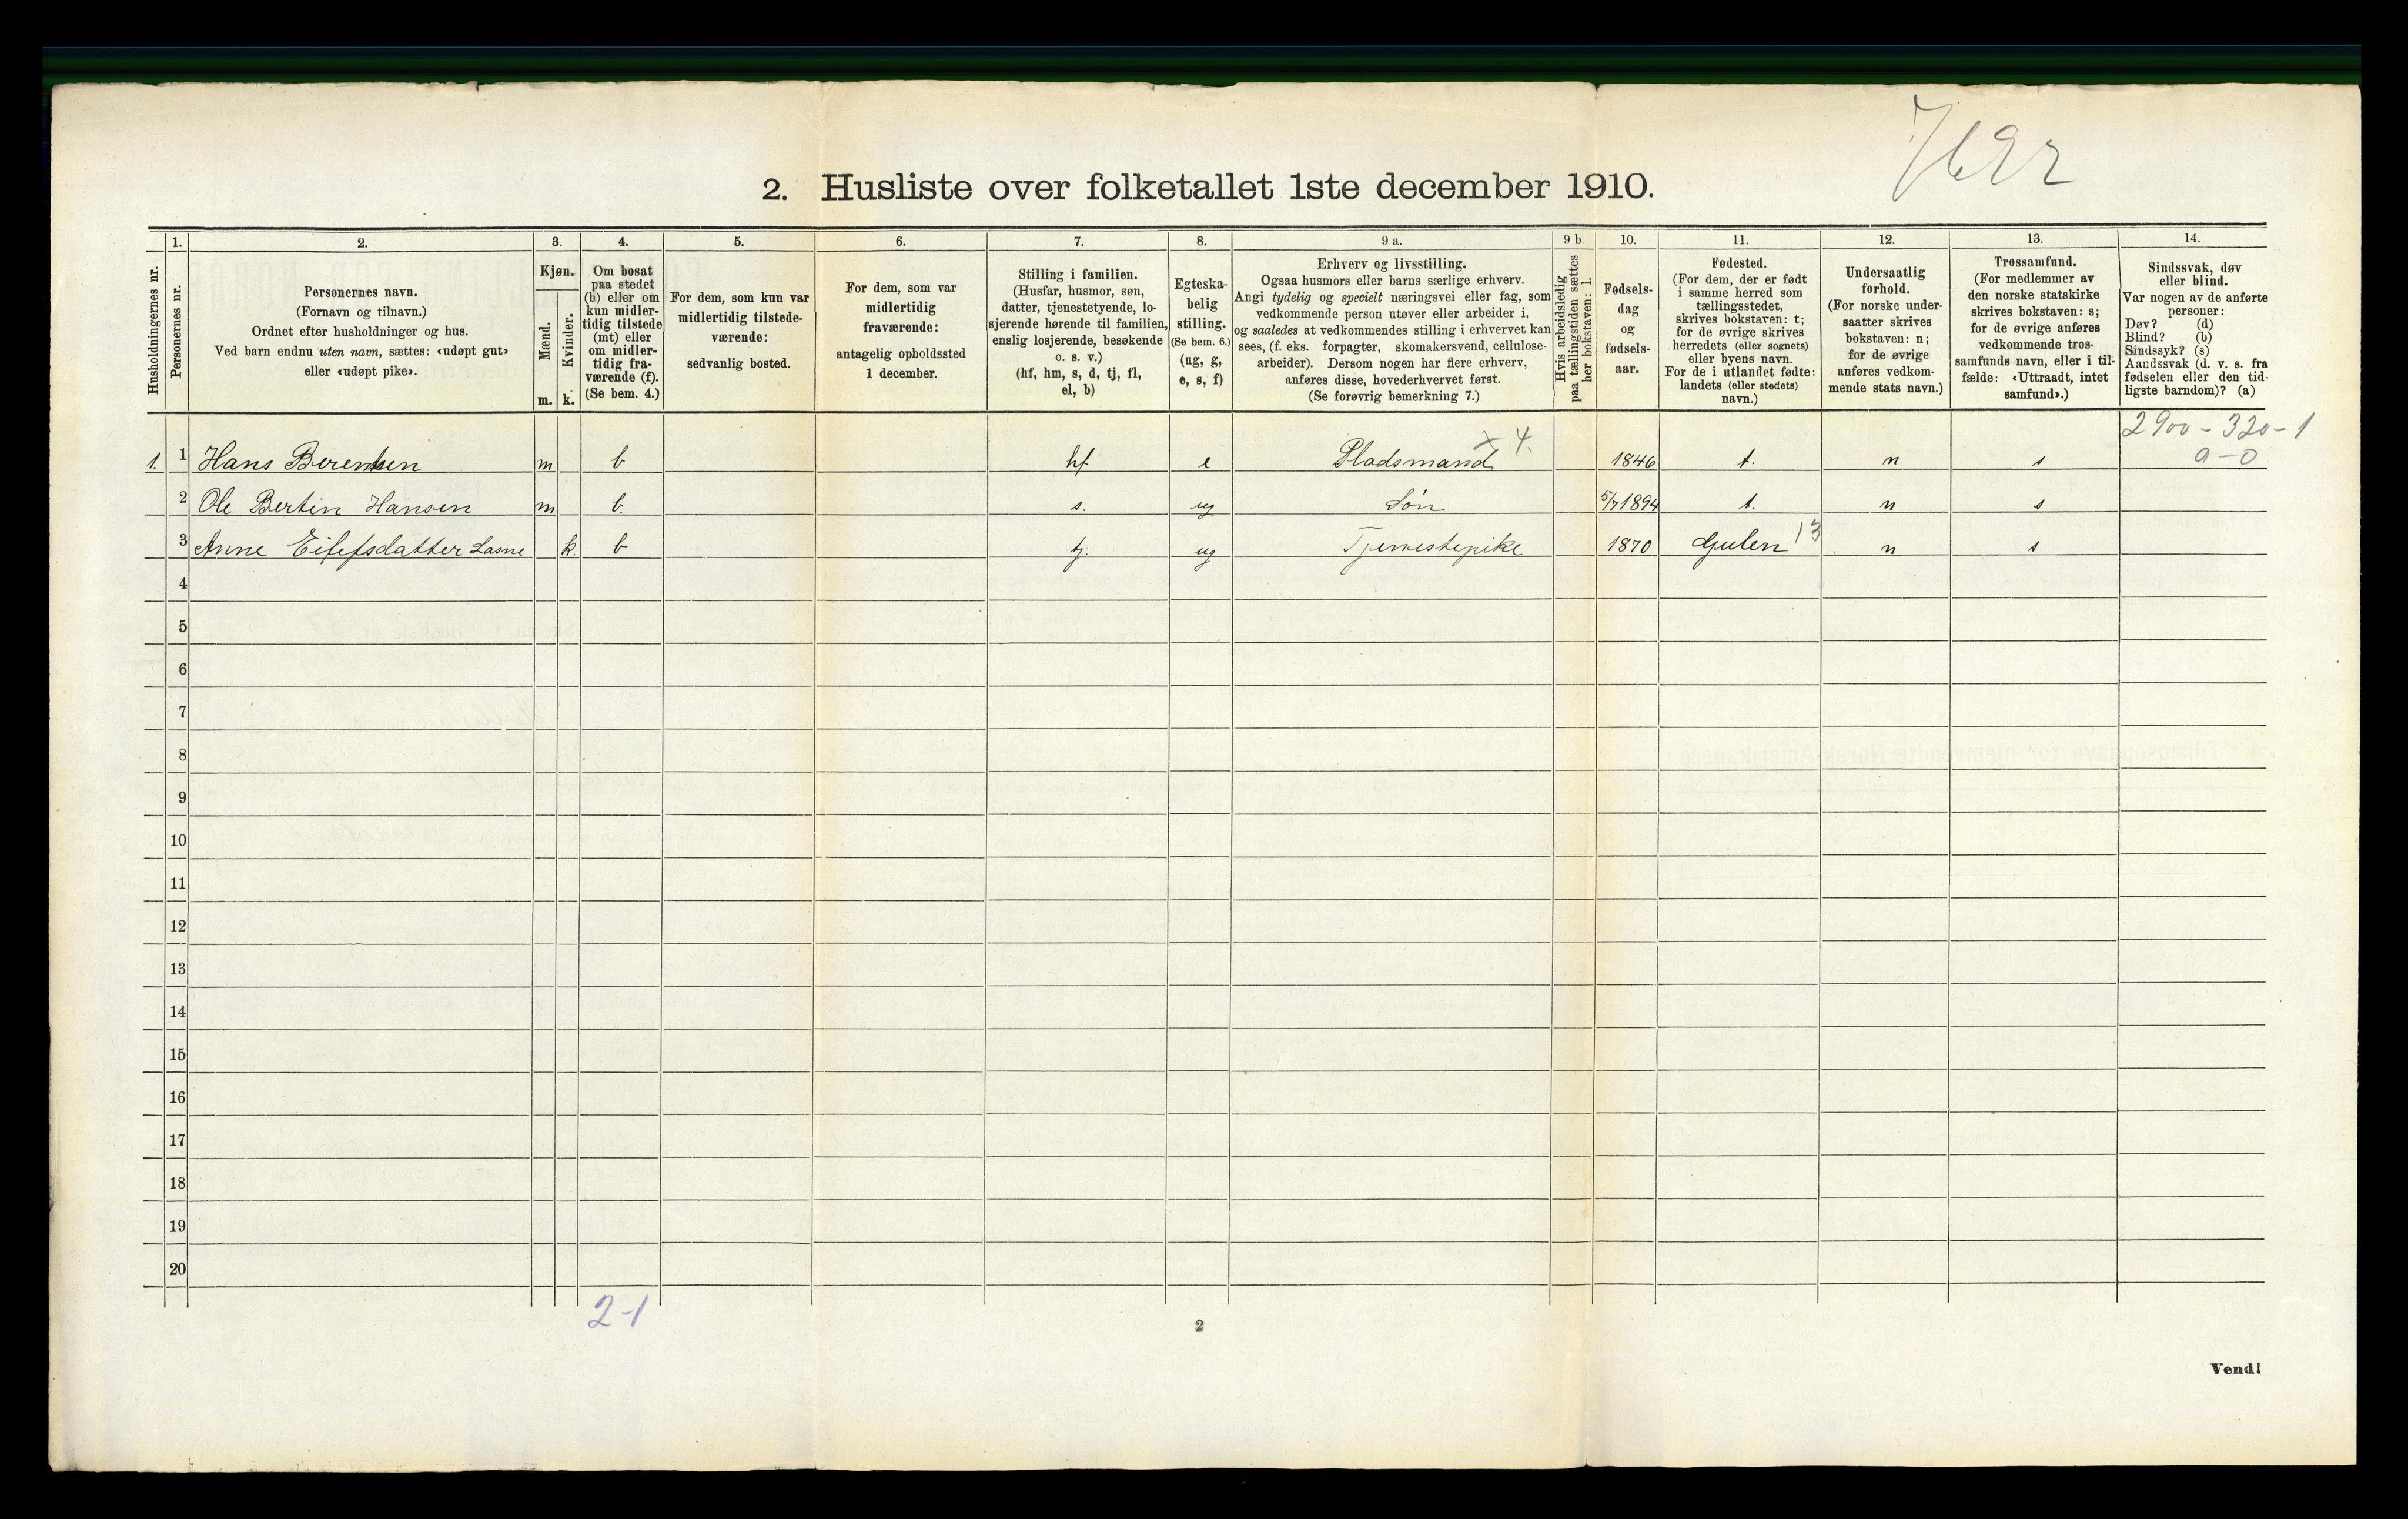 2. Husliste over folketallet 1ste december 1910.
Husholdningernes nr.
1.
Personernes nr.
2.
Personernes navn.
(Fornavn og tilnavn.)
Ordnet efter husholdninger og hus.
Ved barn endnu uten navn, sættes: «udøpt gut»
eller «udøpt pike».
3.
Kjøn.
Mænd.
Kvinder.
m. k.
4.
Om bosat
paa stedet
(b) eller om
kun midler-
tidig tilstede
(mt) eller
om midler-
tidig fra-
værende (f).
(Se bem. 4.)
5.
For dem, som kun var
midlertidig tilstede-
værende:
sedvanlig bosted.
6.
For dem, som var
midlertidig
fraværende:
antagelig opholdssted
1 december.
7.
Stilling i familien.
(Husfar, husmor, søn,
datter, tjenestetyende, lo-
sjerende hørende til familien,
enslig losjerende, besøkende
o. s. v.)
(hf, hm, s, d, tj, fl,
el, b)
8.
Egteska-
belig
stilling.
(Se bem. 6.)
(ug, g,
e, s, f)
9 a.
Erhverv og livsstilling.
Ogsaa husmors eller barns særlige erhverv.
Angi tydelig og specielt næringsvei eller fag, som
vedkommende person utøver eller arbeider i,
og saaledes at vedkommendes stilling i erhvervet kan
sees, (f. eks. forpagter, skomakersvend, cellulose-
arbeider). Dersom nogen har flere erhverv,
anføres disse, hovederhvervet først.
(Se forøvrig bemerkning 7.)
9 b.
Hvis arbeidsledig
paa tællingstiden sættes
her bokstaven: l.
10.
Fødsels-
dag
og
fødsels-
aar.
11.
Fødested.
(For dem, der er født
i samme herred som
tællingsstedet,
skrives bokstaven: t;
for de øvrige skrives
herredets (eller sognets)
eller byens navn.
For de i utlandet fødte:
landets (eller stedets)
navn.)
12.
Undersaatlig
forhold.
(For norske under-
saatter skrives
bokstaven: n;
for de øvrige
anføres vedkom-
mende stats navn.)
13.
Trossamfund.
(For medlemmer av
den norske statskirke
skrives bokstaven: s;
for de øvrige anføres
vedkommende tros-
samfunds navn, eller i til-
fælde: «Uttraadt, intet
samfund».)
14.
Sindssvak, døv
eller blind.
Var nogen av de anførte
personer:
Døv? (d)
Blind? (b)
Sindssyk? (s)
Aandssvak (d. v. s. fra
fødselen eller den tid-
ligste barndom)? (a)
2900 - 320 - 1
0 - 0
1. 1 Hans Berentsen m b hf e Pladsmand x 4. 1846 t. n s
2 Ole Bertin Hansen m b. s. ug Søn 5/7 1894 t. n s
3 Anne Eilefsdatter k. b tj. ug Tjenestepike 1870 Gulen 13 n s
4
5
6
7
8
9
10
11
12
13
14
15
16
17
18
19
20
2-1
2
Vend!